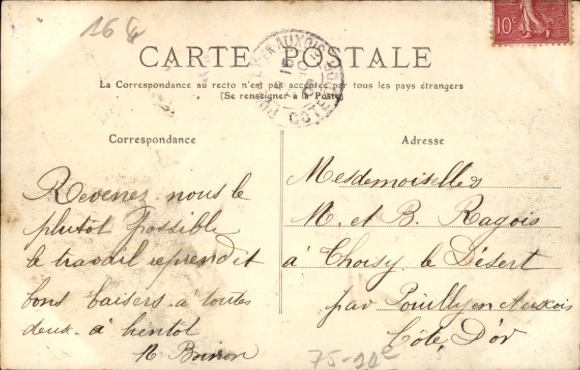 16 €
10c
CARTE POSTALE
La Correspondance au recto n'est pas acceptée par tous les pays étrangers
(Se renseigner à la Poste)
Correspondance
Revenez nous le
plutôt possible
le travail reprend et
bons baisers à toutes
deux à bientôt
Adresse
Mesdemoiselles
M. et B. Ragois
à Choisy le Désert
par Pouilly en Auxois
Côte, D'or